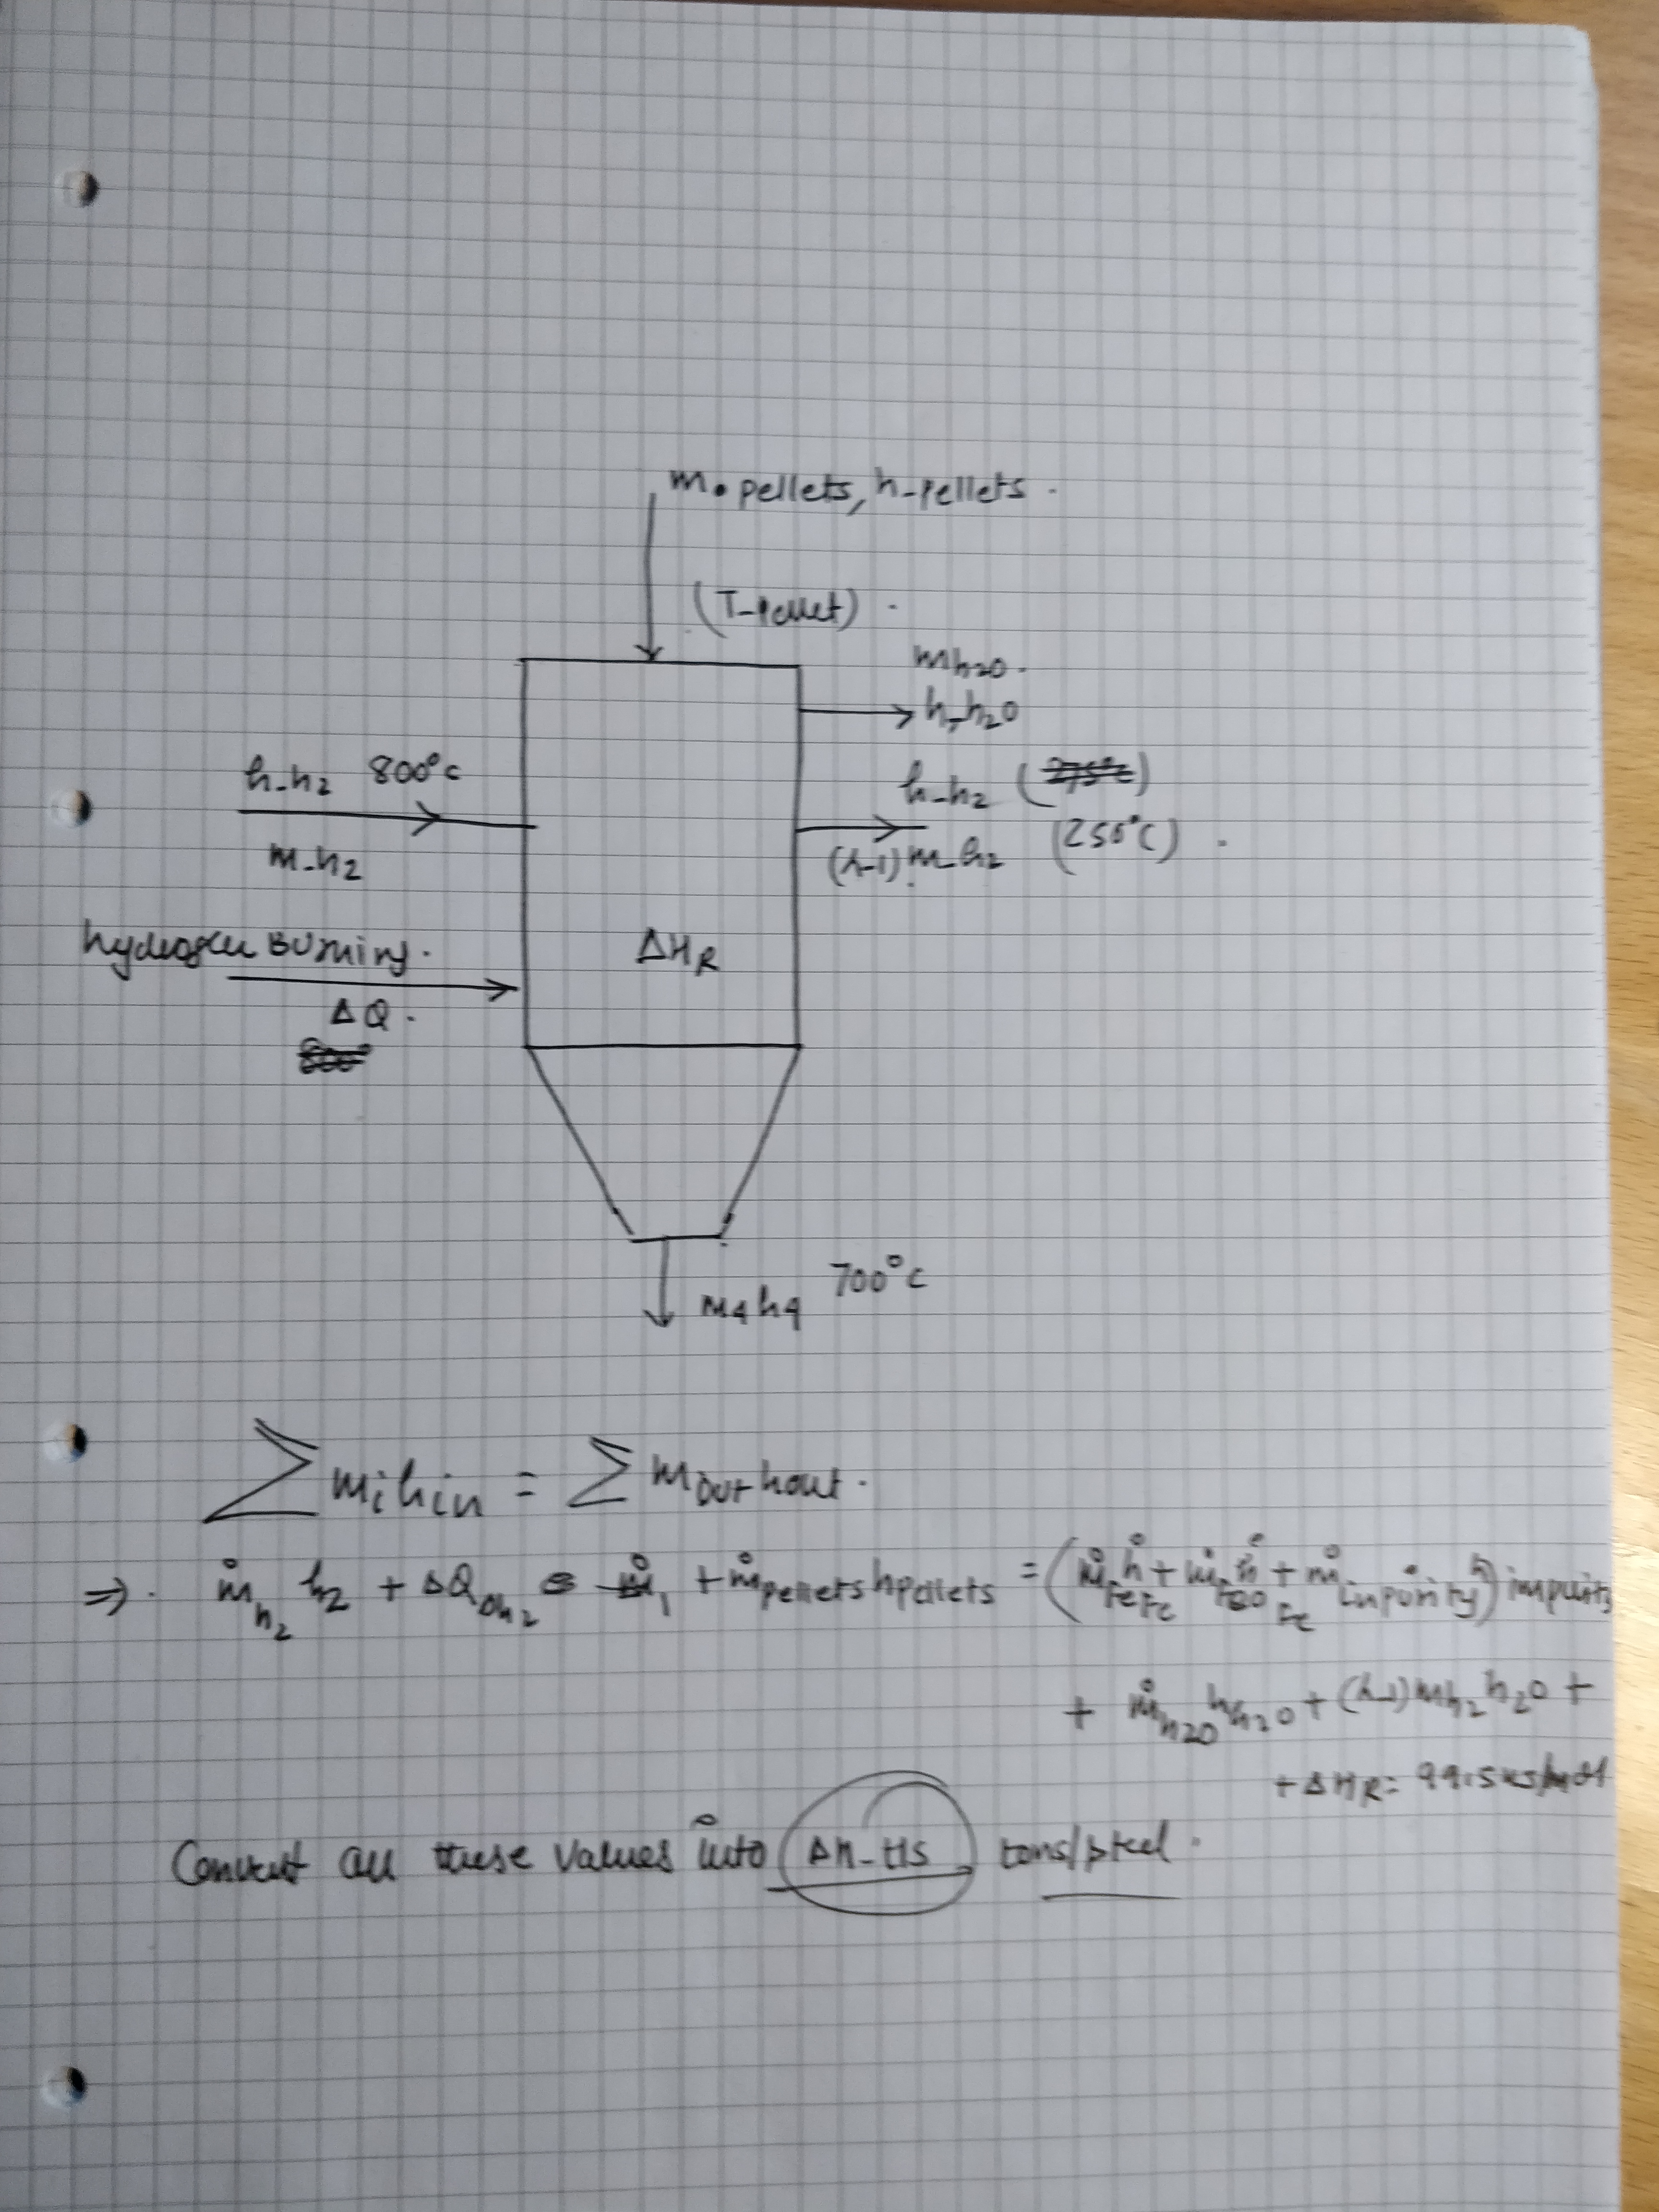 m. pellets, h-pellets.
(T-pellet).
mh2o.
h-h2o
h-h2 800°c
m-h2
h-h2
(λ-1) m-h2 (250°C).
hydrogen Burning.
ΔQ.
ΔHR
700°c
m4h4
Σ mihin = Σ mout hout.
⇒. ṁh2 h2 + ΔQ + ṁpellets hpellets = (ṁFe h Fe + ṁFeO h Fe + ṁ impurity h) impurity
+ ṁh2o hh2o + (λ-1) mh2 h2o +
+ ΔHR = 99.5 kJ/mol
Convert all these values into Δh-HS tons/steel.